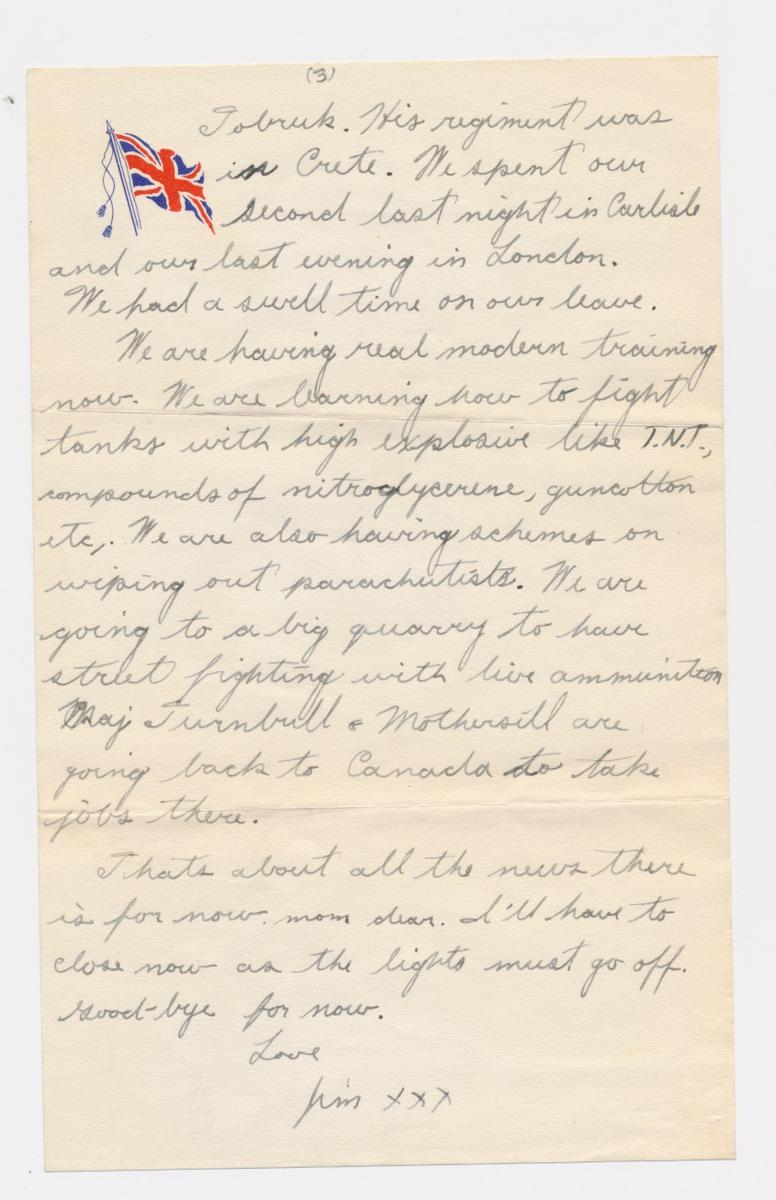 (3)
Tobruk. His regiment was
in Crete. We spent our
second last night in Carlisle
and our last evening in London.
We had a swell time on our leave.
We are having real modern training
now. We are learning how to fight
tanks with high explosive like T.N.T.,
compounds of nitroglycerene, guncotton
etc,. We are also having schemes on
wiping out parachutists. We are
going to a big quarry to have
street fighting with live ammunition
Maj Turnbull & Mothersill are
going back to Canada to take
jobs there.
Thats about all the news there
is for now mom dear. I'll have to
close now as the lights must go off.
Good-bye for now.
Love
Jim xxx